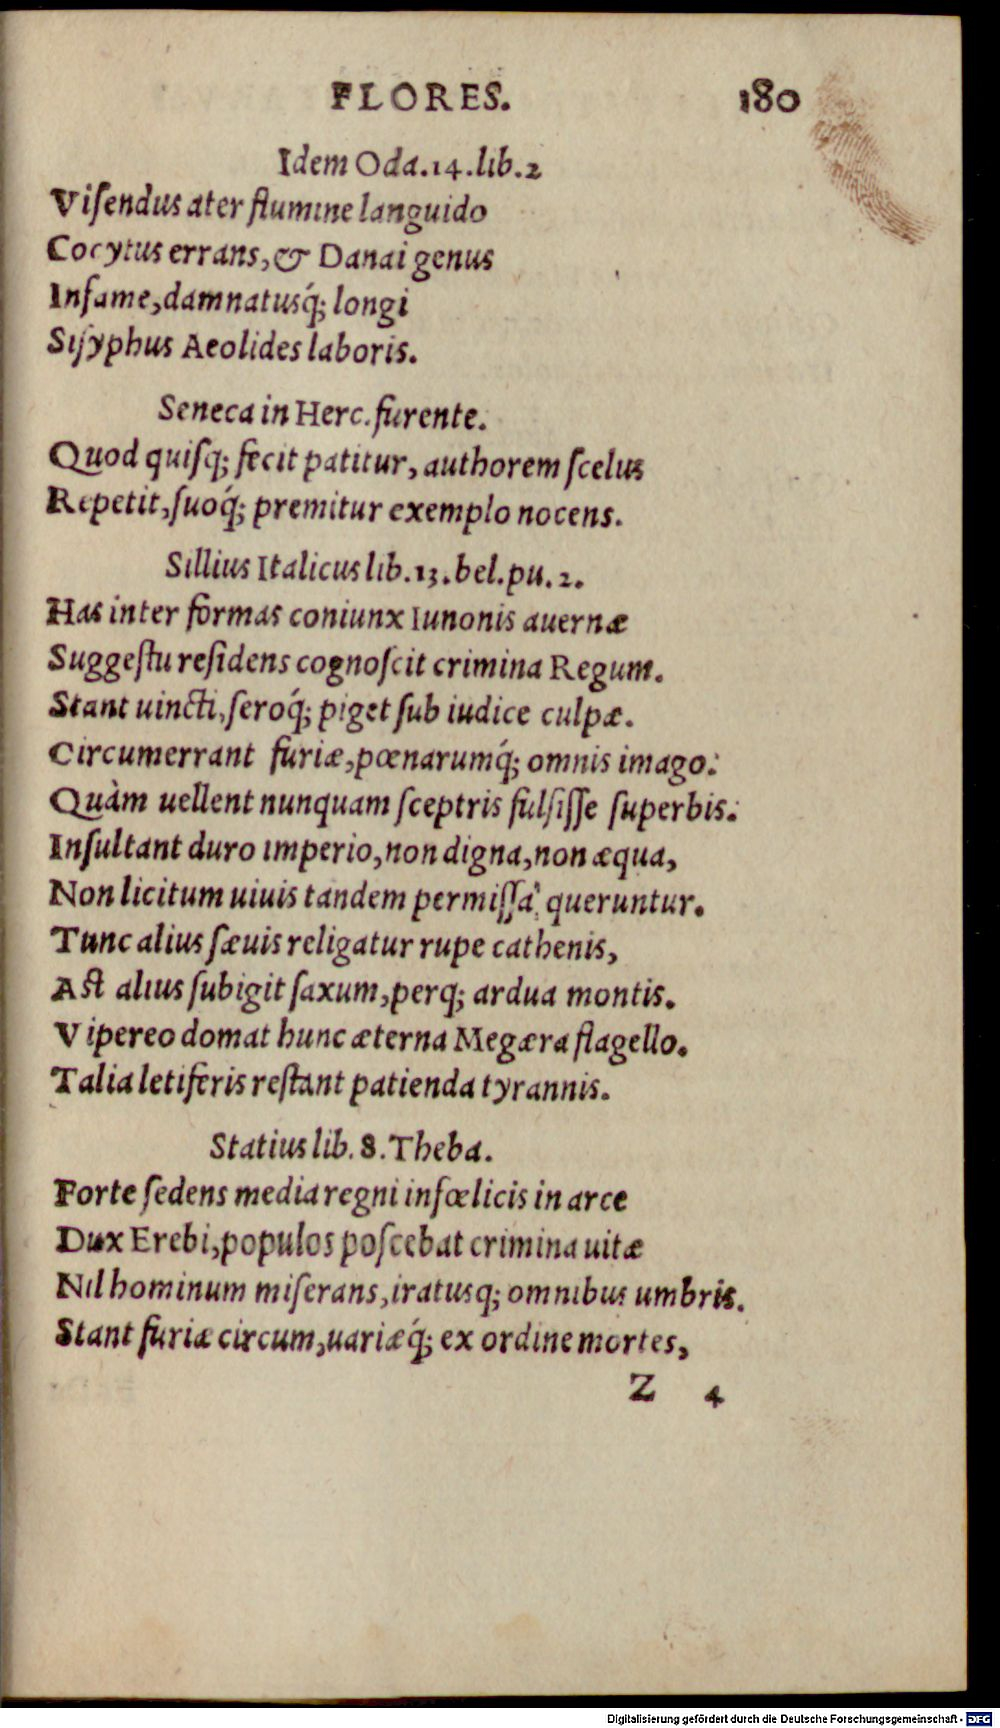 FLORES. 180
Idem Oda.14.lib.2
Viſendus ater flumine languido
Cocytus errans, & Danai genus
Infame, damnatusq́; longi
Siſyphus Aeolides laboris.
Seneca in Herc. furente.
Quod quiſq; fecit patitur, authorem ſcelus
Repetit, ſuoq́; premitur exemplo nocens.
Sillius Italicus lib.13.bel.pu.2.
Has inter formas coniunx Iunonis auernæ
Suggeſtu reſidens cognoſcit crimina Regum.
Stant uincti, ſeroq́; piget ſub iudice culpæ.
Circumerrant furiæ, pœnarumq́; omnis imago:
Quàm uellent nunquam ſceptris fulſiſſe ſuperbis:
Inſultant duro imperio, non digna, non æqua,
Non licitum uiuis tandem permiſſa queruntur.
Tunc alius ſæuis religatur rupe cathenis,
Aſt alius ſubigit ſaxum, perq; ardua montis.
Vipereo domat hunc æterna Megæra flagello.
Talia letiferis reſtant patienda tyrannis.
Statius lib. 8. Theba.
Forte ſedens media regni infœlicis in arce
Dux Erebi, populos poſcebat crimina uitæ
Nil hominum miſerans, iratusq; omnibus umbris.
Stant furiæ circum, uariæq́; ex ordine mortes,
Z 4
Digitalisierung gefördert durch die Deutsche Forschungsgemeinschaft - DFG